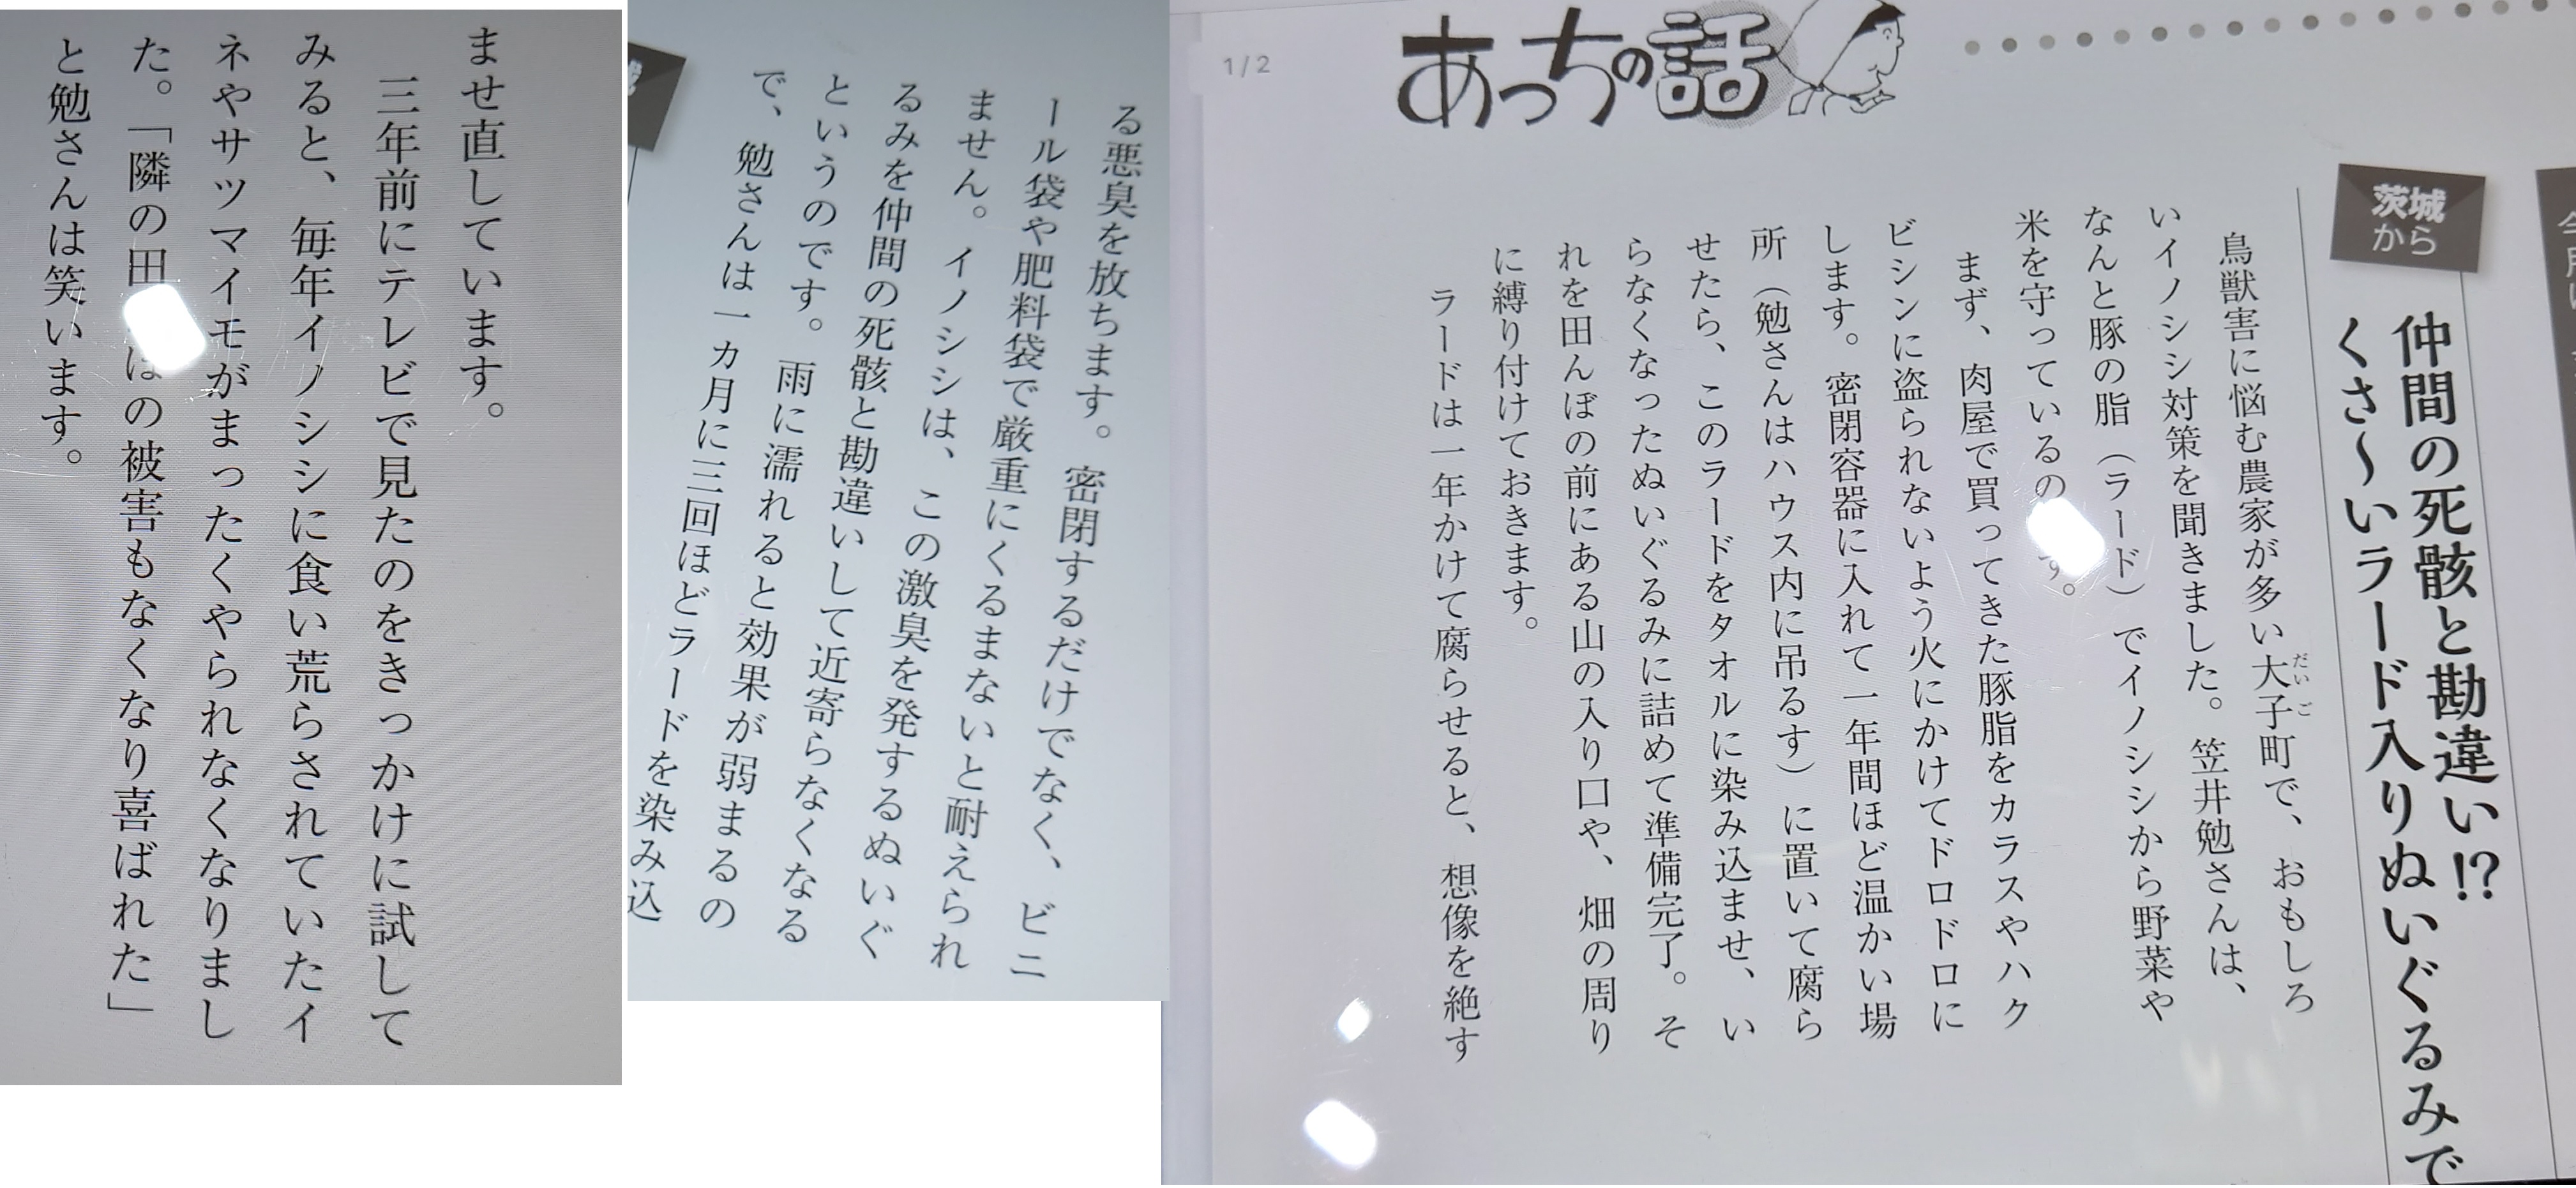 1/2
あっちの話
茨城
から
仲間の死骸と勘違い!?
くさ〜いラード入りぬいぐるみで
鳥獣害に悩む農家が多い大子町で、おもしろ
だいご
いイノシシ対策を聞きました。笠井勉さんは、
なんと豚の脂（ラード）でイノシシから野菜や
米を守っているの す。
まず、肉屋で買ってきた豚脂をカラスやハク
ビシンに盗られないよう火にかけてドロドロに
します。密閉容器に入れて一年間ほど温かい場
所（勉さんはハウス内に吊るす）に置いて腐ら
せたら、このラードをタオルに染み込ませ、い
らなくなったぬいぐるみに詰めて準備完了。そ
れを田んぼの前にある山の入り口や、畑の周り
に縛り付けておきます。
ラードは一年かけて腐らせると、想像を絶す
る悪臭を放ちます。密閉するだけでなく、ビニ
ール袋や肥料袋で厳重にくるまないと耐えられ
ません。イノシシは、この激臭を発するぬいぐ
るみを仲間の死骸と勘違いして近寄らなくなる
というのです。雨に濡れると効果が弱まるの
で、勉さんは一カ月に三回ほどラードを染み込
ませ直しています。
三年前にテレビで見たのをきっかけに試して
みると、毎年イノシシに食い荒らされていたイ
ネやサツマイモがまったくやられなくなりまし
た。「隣の田 ぼの被害もなくなり喜ばれた」
と勉さんは笑います。